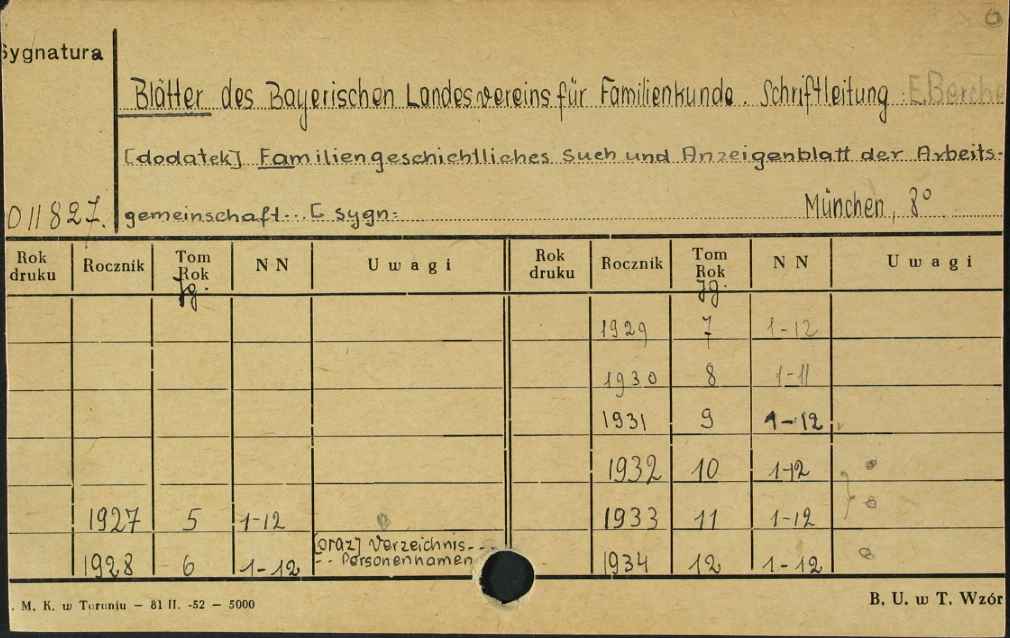 Sygnatura
Blätter des Bayerischen Landesvereins für Familienkunde. Schriftleitung
[dodatek] Familiengeschichtliches Such und Anzeigenblatt der Arbeits-
011827. gemeinschaft... [ sygn: München, 8°
Rok druku Rocznik Tom Rok NN Uwagi Rok druku Rocznik Tom Rok NN Uwagi
Jg. Jg.
1929 7 1-12
1930 8 1-11
1931 9 1-12
1932 10 1-12
1927 5 1-12 1933 11 1-12
1928 6 1-12 [oraz] Verzeichnis... ... Personennamen 1934 12 1-12
. M. K. w Toruniu — 81 II. -52 — 5000 B. U. w T. Wzór